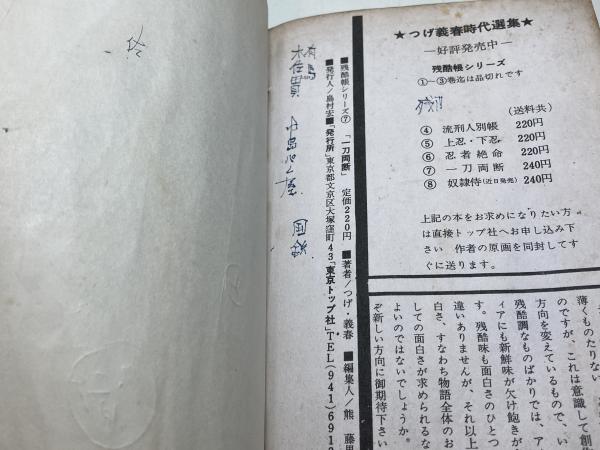 ★つげ義春時代選集★
―好評発売中―
残酷帳シリーズ
①~③巻迄は品切れです
(送料共)
④ 流刑人別帳 220円
⑤ 上忍・下忍 220円
⑥ 忍者絶命 220円
⑦ 一刀両断 240円
⑧ 奴隷侍(近日発売) 240円
上記の本をお求めになりたい方
は直接トップ社へお申し込み下
さい 作者の原画を同封してす
ぐに送ります。
薄くものたりない
のですが、これは意識して創作
方向を変えているもので、い
残酷調なものばかりでは、ア
ィアにも新鮮味が欠け飽きが
す。残酷味も面白さのひとつ
違いありませんが、それ以上
白さ、すなわち物語全体のお
しての面白さが求められるな
よいのではないでしょうか。
ぞ新しい方向に御期待下さい
■残酷帳シリーズ⑦ 「一刀両断」 定価220円 ■著者/つげ・義春 ■編集人/熊 藤
■発行人/島村宏 ■「発行所」東京都文京区大塚窪町43「東京トップ社」TEL(941)691